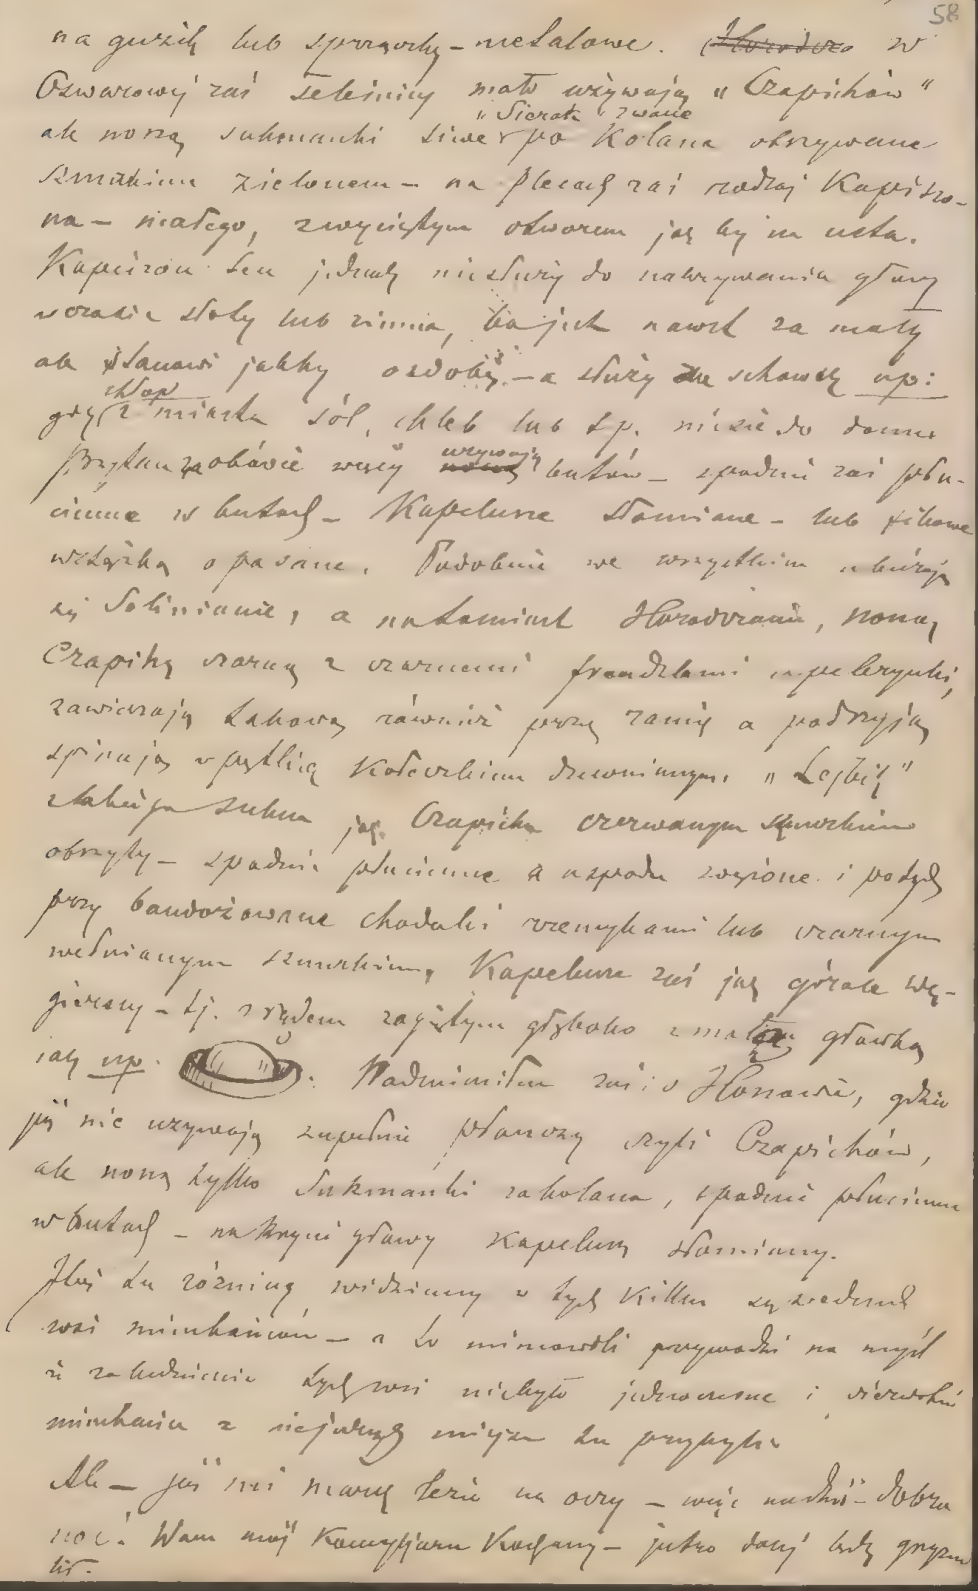 58
na guziki lub sprzączkę – metalowe. w
Czwarowej zaś mało używają „Czapichów"
„Sierak" zwane
ale noszą sukmanki siwe po kolana obszywane
sznurkiem zielonem – na plecach zaś rodzaj kapiszo-
na – małego, z wyciętym otworem jak by na usta.
Kapiszon ten jednak nie służy do nakrywania głowy
w czasie słoty lub zimna, bo jest nawet za mały
ale stanowi jakby ozdobę – a służy do schowku np:
chłop
gdy z miasta sól, chleb lub t.p. niesie do domu
używają
Przytem za obówie więcej butów – spodnie zaś płó-
cienne w butach – Kapelusze słomiane – lub filcowe
wstążką opasane. Podobnie we wszystkiem ubierają
się Solinianie, a natomiast Horodczanie, noszą
Czapichę czarną z czarnemi frendzlami u pelerynki,
zawieszają takową również przez ramię a pod szyją
spinają w pętlicę kołeczkiem drewnianym. „Lejbik"
z takiego sukna jak Czapicha czerwonym sznurkiem
obszyty – spodnie płócienne u spodu zwężone i potąd
przy chodaki rzemykami lub czarnym
wełnianym sznurkiem, Kapelusze zaś jak górale wę-
gierscy – tj. z rądem zagiętym głęboko z małą główką
jak np. Nadmieniłem zaś o Hoczwi, gdzie
już nie używają zupełnie płanczy czyli Czapichów,
ale noszą tylko Sukmanki za kolana, spodnie płócienne
w butach – nakrycie głowy kapelusz słomiany.
Ileż tu różnicy widzimy w tych kilku sąsiednich
wsi mieszkańców – a to mimowoli przywodzi na myśl
iż zaludnienie tych wsi nie było jednoczesne i
mieszkańcy z niejednych miejsc tu przybyli
Ale – już mi lezie na oczy – więc na dziś – dobra
noc! Wam mój Kochany – jutro dalej będę gryzmo
lił.